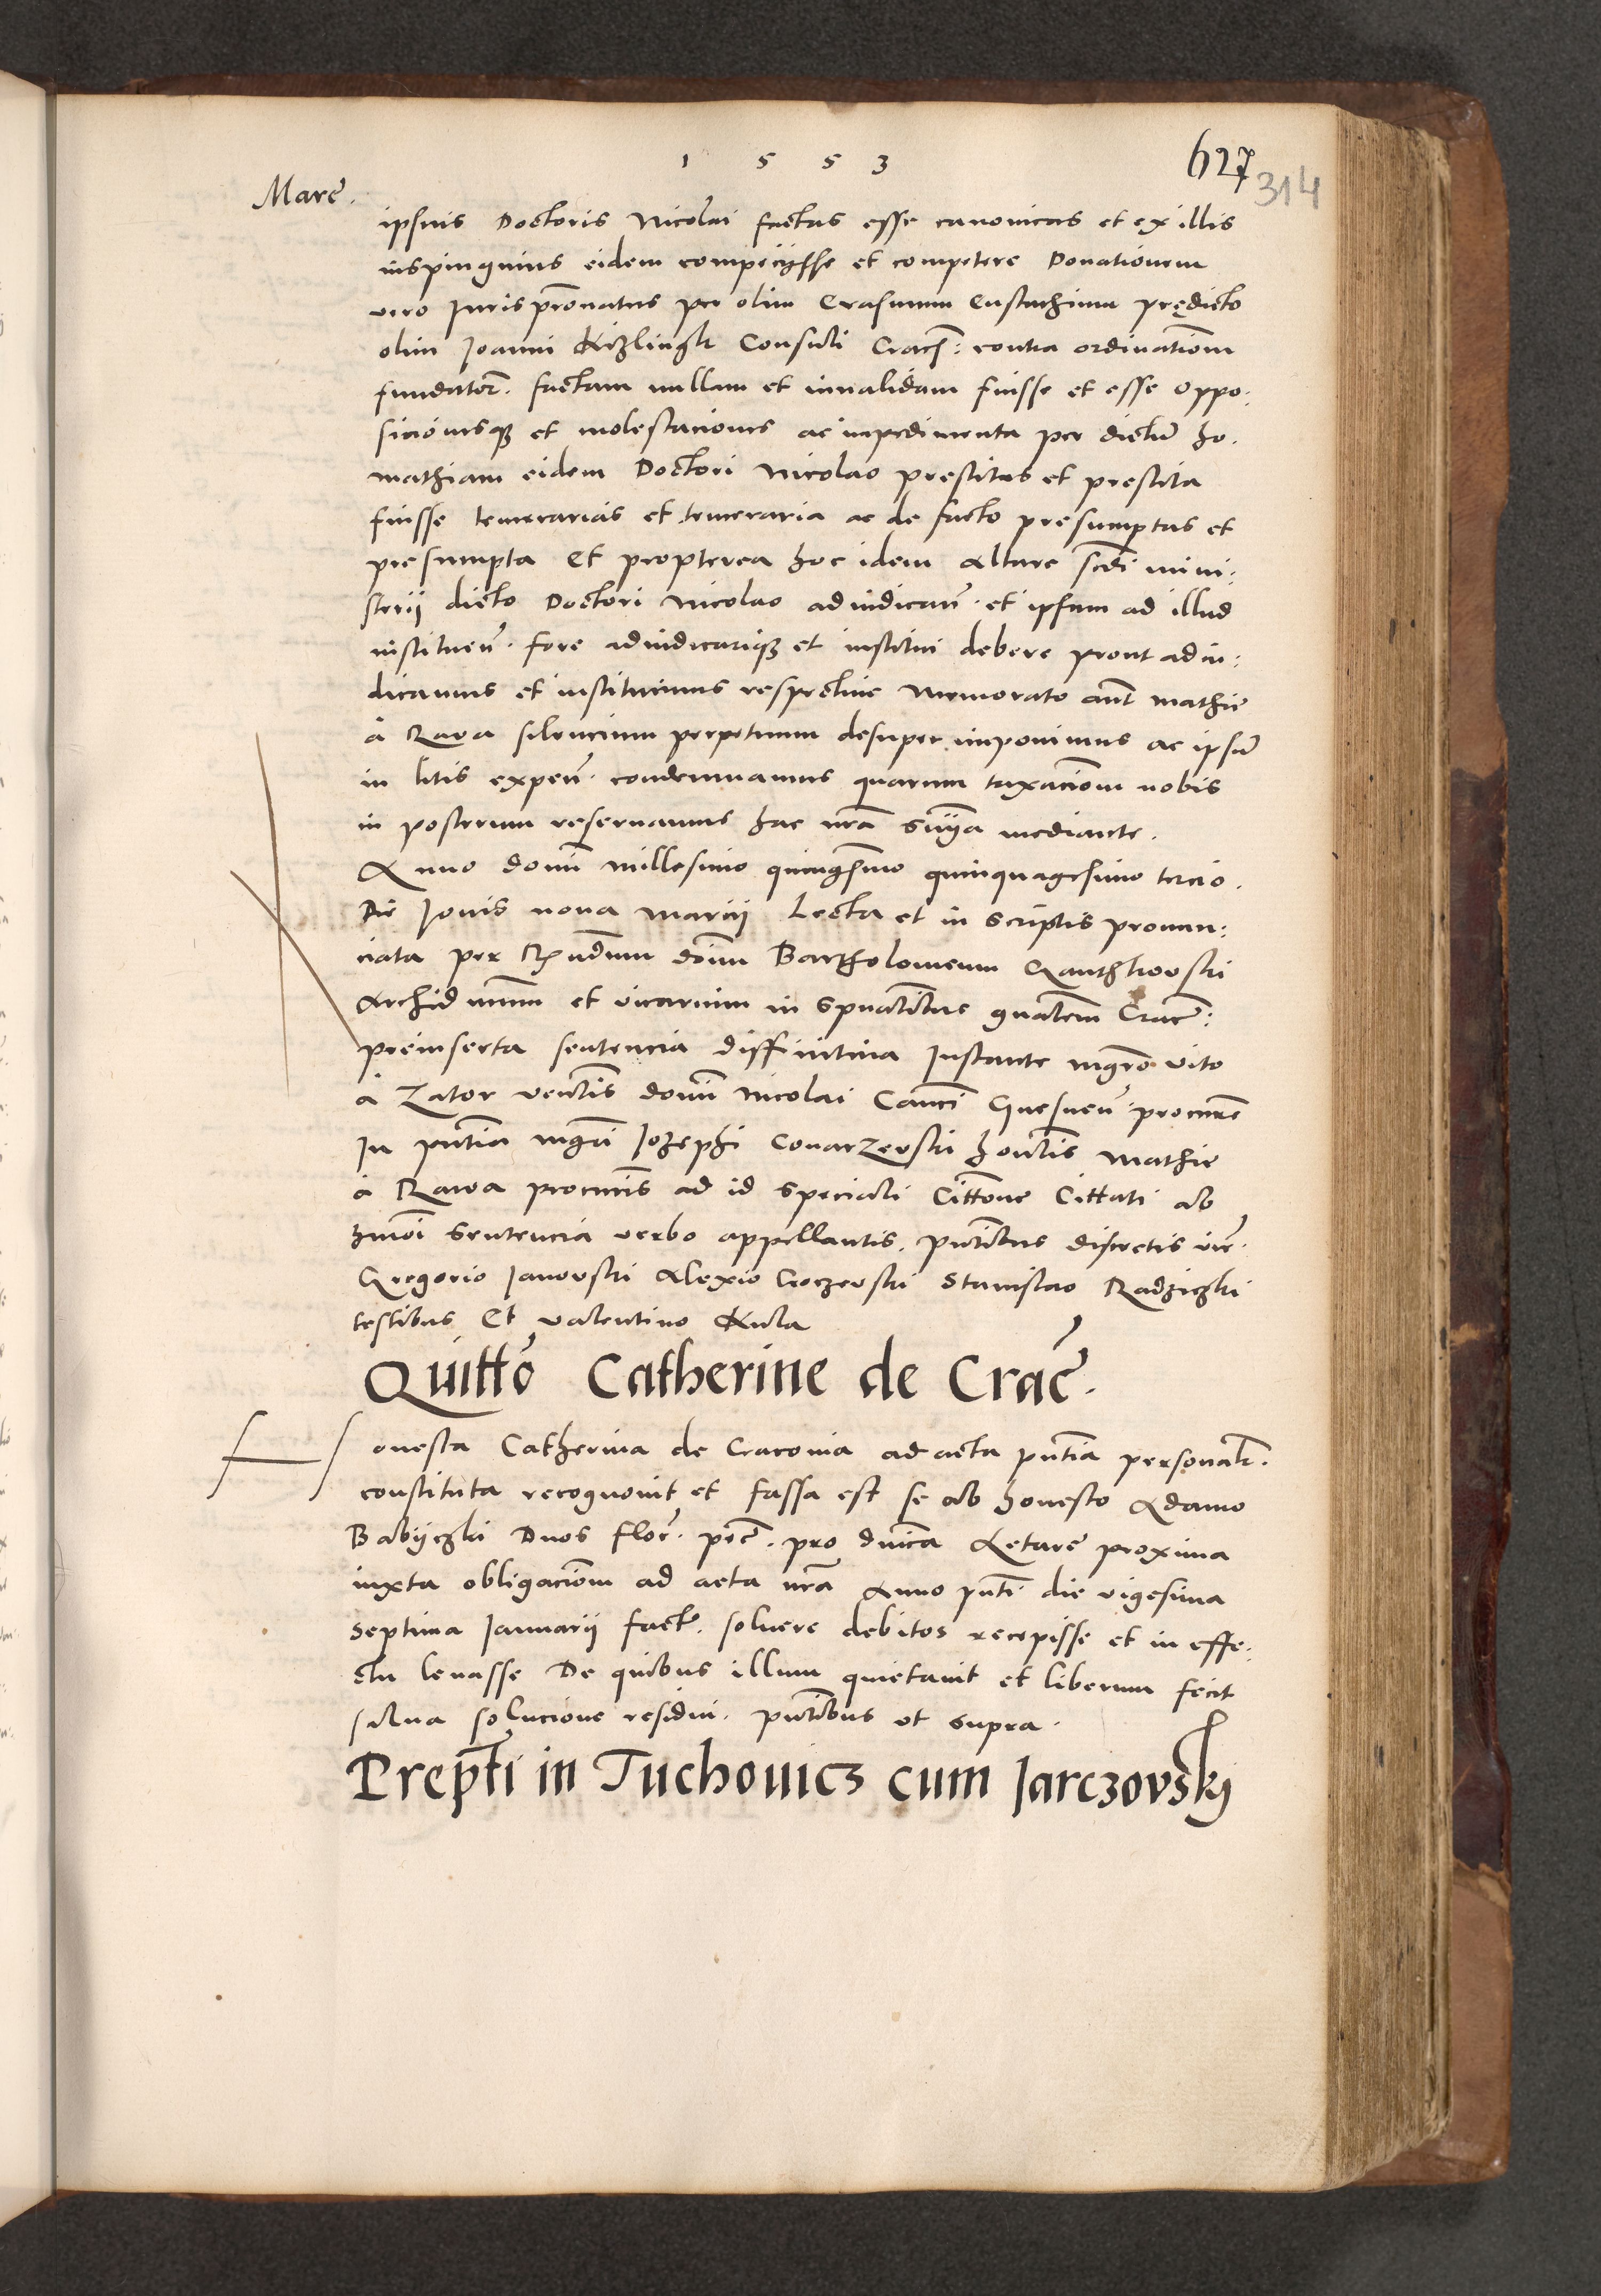 1 5 5 3
627
314
Marc̃.
ipsius Doctoris Nicolai factas esse canonicas et ex illis
ius pinguius eidem compeciisse et competere Donationem
vero Juris pr̃onatus per olim Erasmum Eustachium prędicto
olim Joanni Kizlingk Consuli Crac̃: contra ordinatiõm
fundator̃. factam nullam et invalidam fuisse et esse Oppo:
sicionesqȝ et molestaciones ac impedimenta per dictũ ho.
mathiam eidem Doctori Nicolao prestitas et prestita
fuisse temerarias et temeraria ac de facto presumptas et
presumpta Et propterea hoc idem Altare sc̃di mini:
sterii dicto Doctori Nicolao adiudicañ. et ipsum ad illud
instituen̄. fore adiudicariqȝ et institui debere prout adiu:
dicamus et instituimus respective Memorato aut̃ mathie
à Rava silencium perpetuum desuper imponimus ac ipsũ
in litis expen̄. condemnamus quarum taxaciõm nobis
in posterum reservamus hac nr̃a sñia mediante.
Anno domĩ millesimo quingẽsimo quinquagesimo tercio.
Die Jovis nona Marcii Lecta et in scriptis pronun:
ciata per R̃ndum dõm Bartholomeum Ganthkovski
Archidiac̃num et vicarium in sp̃ualibus gñalem Crac̃:
preinserta sentencia diffinitiva Instante mg̃ro Vito
à Zator veñlis domĩ Nicolai Canci Gnesnen̄. procur̃e
In p̃ntia mg̃ri Jozephi Conarzevski hoñlis Mathie
à Rawa procur̃is ad id speciali Citt̃one Cittati ab
hmõi sentencia verbo appellantis. p̃ntibus discretis vir̃.
Gregorio Janovski Alexio Croczevski Stanislao Radziczki
testibus Et Valentino Kula
Quitt̃o Catherine de Crac̃.
Honesta Catherina de Cracovia ad acta p̃ntia personal̃r.
constituta recognovit et fassa est se ab honesto Adamo
Babyczki Duos flor̃. pec̃. pro dñica Letare proxima
iuxta obligaciõm ad acta nr̃a Anno p̃nti die vigesima
septima Januarii fact̃. solvere debitos recepisse et in effe:
ctu levasse De quibus illum quietavit et liberum fecit
salva solucione residui. p̃ntibus ut supra.
Prep̃ti in Tuchovicz cum Jarczovskị